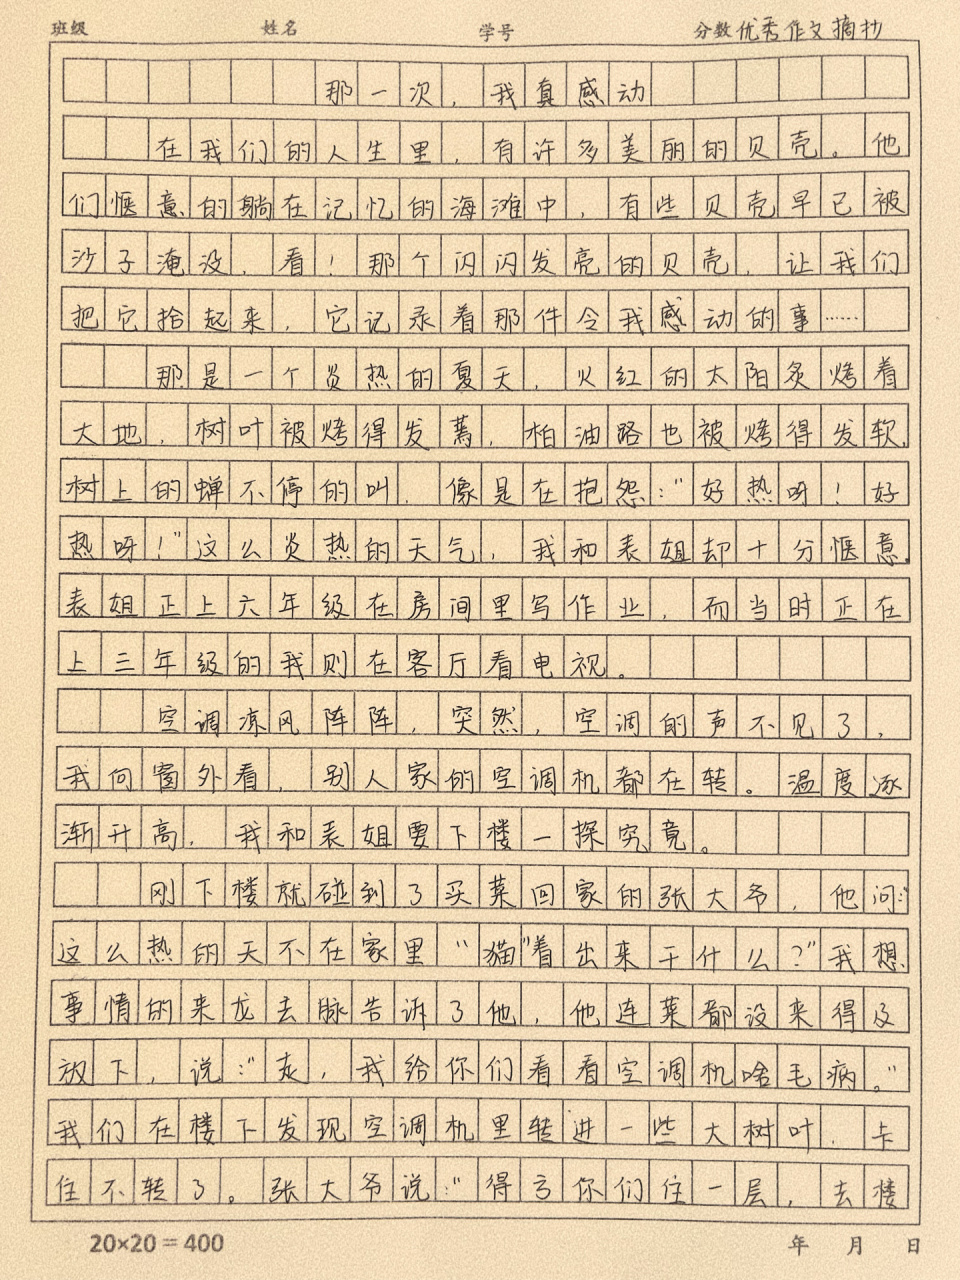 班级 姓名 学号 分数 优秀作文摘抄
那一次，我真感动
在我们的人生里，有许多美丽的贝壳。他
们惬意的躺在记忆的海滩中，有些贝壳早已被
沙子淹没，看！那个闪闪发亮的贝壳，让我们
把它拾起来，它记录着那件令我感动的事……
那是一个炎热的夏天，火红的太阳炙烤着
大地，树叶被烤得发蔫，柏油路也被烤得发软，
树上的蝉不停的叫，像是在抱怨：“好热呀！好
热呀！”这么炎热的天气，我和表姐却十分惬意。
表姐正上六年级在房间里写作业，而当时正在
上三年级的我则在客厅看电视。
空调凉风阵阵，突然，空调的声不见了，
我向窗外看，别人家的空调机都在转。温度逐
渐升高，我和表姐要下楼一探究竟。
刚下楼就碰到了买菜回家的张大爷，他问：“
这么热的天不在家里“猫”着出来干什么？”我想
事情的来龙去脉告诉了他，他连菜都没来得及
放下，说：“走，我给你们看看空调机啥毛病。”
我们在楼下发现空调机里转进一些大树叶，卡
住不转了。张大爷说：“得亏你们住一层，去楼
20×20＝400 年 月 日